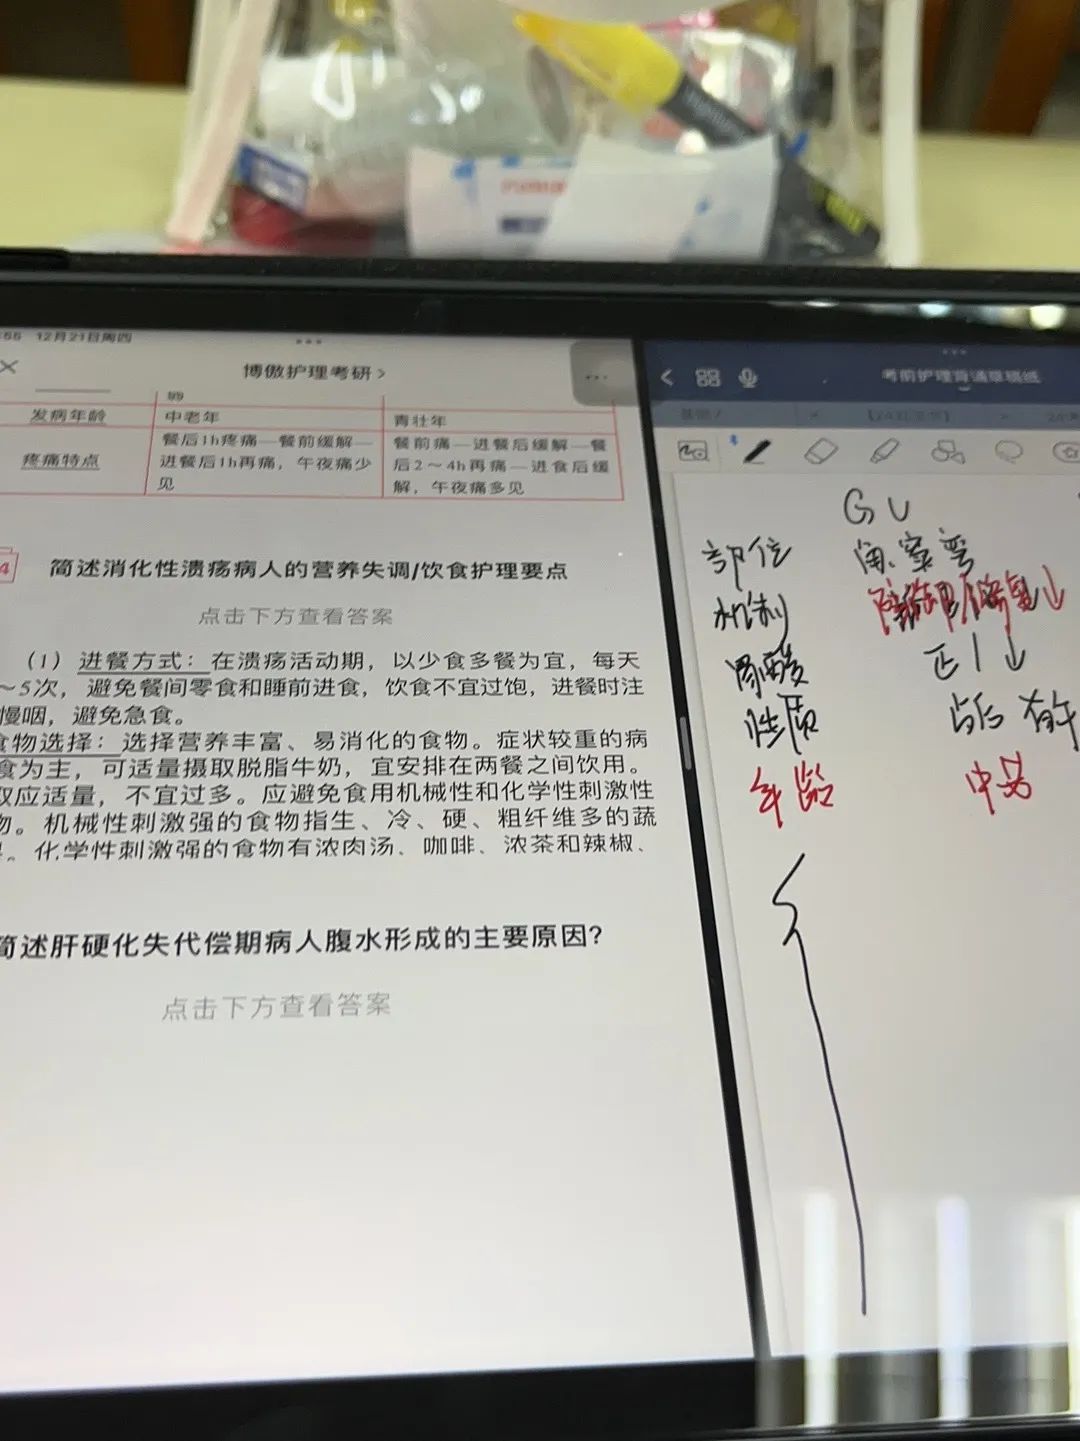 12月21日周四
博傲护理考研 >
发病年龄
中老年
青壮年
疼痛特点
餐后1h疼痛—餐前缓解—
进餐后1h再痛，午夜痛少
见
餐前痛—进餐后缓解—餐
后2～4h再痛—进食后缓
解，午夜痛多见
4 简述消化性溃疡病人的营养失调/饮食护理要点
点击下方查看答案
（1）进餐方式：在溃疡活动期，以少食多餐为宜，每天
～5次，避免餐间零食和睡前进食，饮食不宜过饱，进餐时注
慢咽，避免急食。
食物选择：选择营养丰富、易消化的食物。症状较重的病
食为主，可适量摄取脱脂牛奶，宜安排在两餐之间饮用。
取应适量，不宜过多。应避免食用机械性和化学性刺激性
物。机械性刺激强的食物指生、冷、硬、粗纤维多的蔬
。化学性刺激强的食物有浓肉汤、咖啡、浓茶和辣椒、
简述肝硬化失代偿期病人腹水形成的主要原因?
点击下方查看答案
考前护理背诵草稿纸
GU
部位 角、窦、弯
机制
胃酸 正/↓
性质
年龄 中老